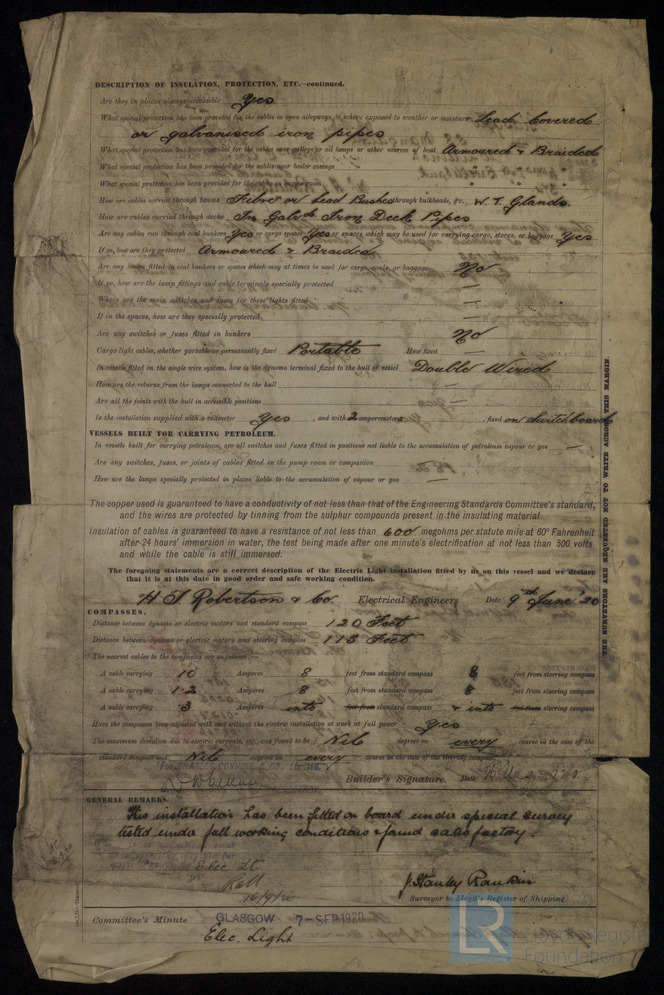 DESCRIPTION OF INSULATION, PROTECTION, ETC.—continued.
Are they in places always accessible Yes
What special protection has been provided for the cables in open alleyways or where exposed to weather or moisture Lead Covered
or galvanised iron pipes
What special protection has been provided for the cables near galleys or oil lamps or other sources of heat Armoured & Braided
What special protection has been provided for the cables near boiler casings "
What special protection has been provided for the cables "
How are cables carried through beams Fibre or Lead Bushes through bulkheads, &c., W.T. Glands.
How are cables carried through decks In Galvd Iron Deck Pipes
Are any cables run through coal bunkers Yes or cargo spaces Yes or spaces which may be used for carrying cargo, stores, or baggage Yes
If so, how are they protected Armoured & Braided
Are any lamps fitted in coal bunkers or spaces which may at times be used for cargo, coals, or baggage No
If so, how are the lamp fittings and cable terminals specially protected —
Where are the main switches and fuses for these lights fitted —
If in the spaces, how are they specially protected —
Are any switches or fuses fitted in bunkers No
Cargo light cables, whether portable or permanently fixed Portable How fixed —
In vessels fitted on the single wire system, how is the dynamo terminal fixed to the hull of vessel Double Wired
How are the returns from the lamps connected to the hull —
Are all the joints with the hull in accessible positions —
Is the installation supplied with a voltmeter Yes , and with 2 amperemeters , fixed on Switchboard
VESSELS BUILT FOR CARRYING PETROLEUM.
In vessels built for carrying petroleum, are all switches and fuses fitted in positions not liable to the accumulation of petroleum vapour or gas —
Are any switches, fuses, or joints of cables fitted in the pump room or companion —
How are the lamps specially protected in places liable to the accumulation of vapour or gas —
The copper used is guaranteed to have a conductivity of not less than that of the Engineering Standards Committee's standard,
and the wires are protected by tinning from the sulphur compounds present in the insulating material.
Insulation of cables is guaranteed to have a resistance of not less than 600 megohms per statute mile at 60° Fahrenheit
after 24 hours' immersion in water, the test being made after one minute's electrification at not less than 500 volts
and while the cable is still immersed.
The foregoing statements are a correct description of the Electric Light installation fitted by us on this vessel and we declare
that it is at this date in good order and safe working condition.
H J Robertson & Co. Electrical Engineers Date 9th June '20
COMPASSES.
Distance between dynamo or electric motors and standard compass 120 Feet
Distance between dynamo or electric motors and steering compass 115 Feet
The nearest cables to the compasses are as follows:—
A cable carrying 10 Amperes 8 feet from standard compass 8 feet from steering compass
A cable carrying 1.2 Amperes 8 feet from standard compass 8 feet from steering compass
A cable carrying 3 Amperes into feet from standard compass & into feet from steering compass
Have the compasses been adjusted with and without the electric installation at work at full power Yes
The maximum deviation due to electric currents, etc., was found to be Nil degrees on every course in the case of the
standard compass and Nil degrees on every course in the case of the steering compass.
Builder's Signature. Date
GENERAL REMARKS.
This installation has been fitted on board under special survey
tested under full working conditions & found satisfactory.
Elec Lt
16/9/20
J. Stanley Rankin
Surveyor to Lloyd's Register of Shipping.
Committee's Minute GLASGOW 7-SEP 1920
Elec. Light
THE SURVEYORS ARE REQUESTED NOT TO WRITE ACROSS THIS MARGIN.
LR
Lloyd's Register
Foundation